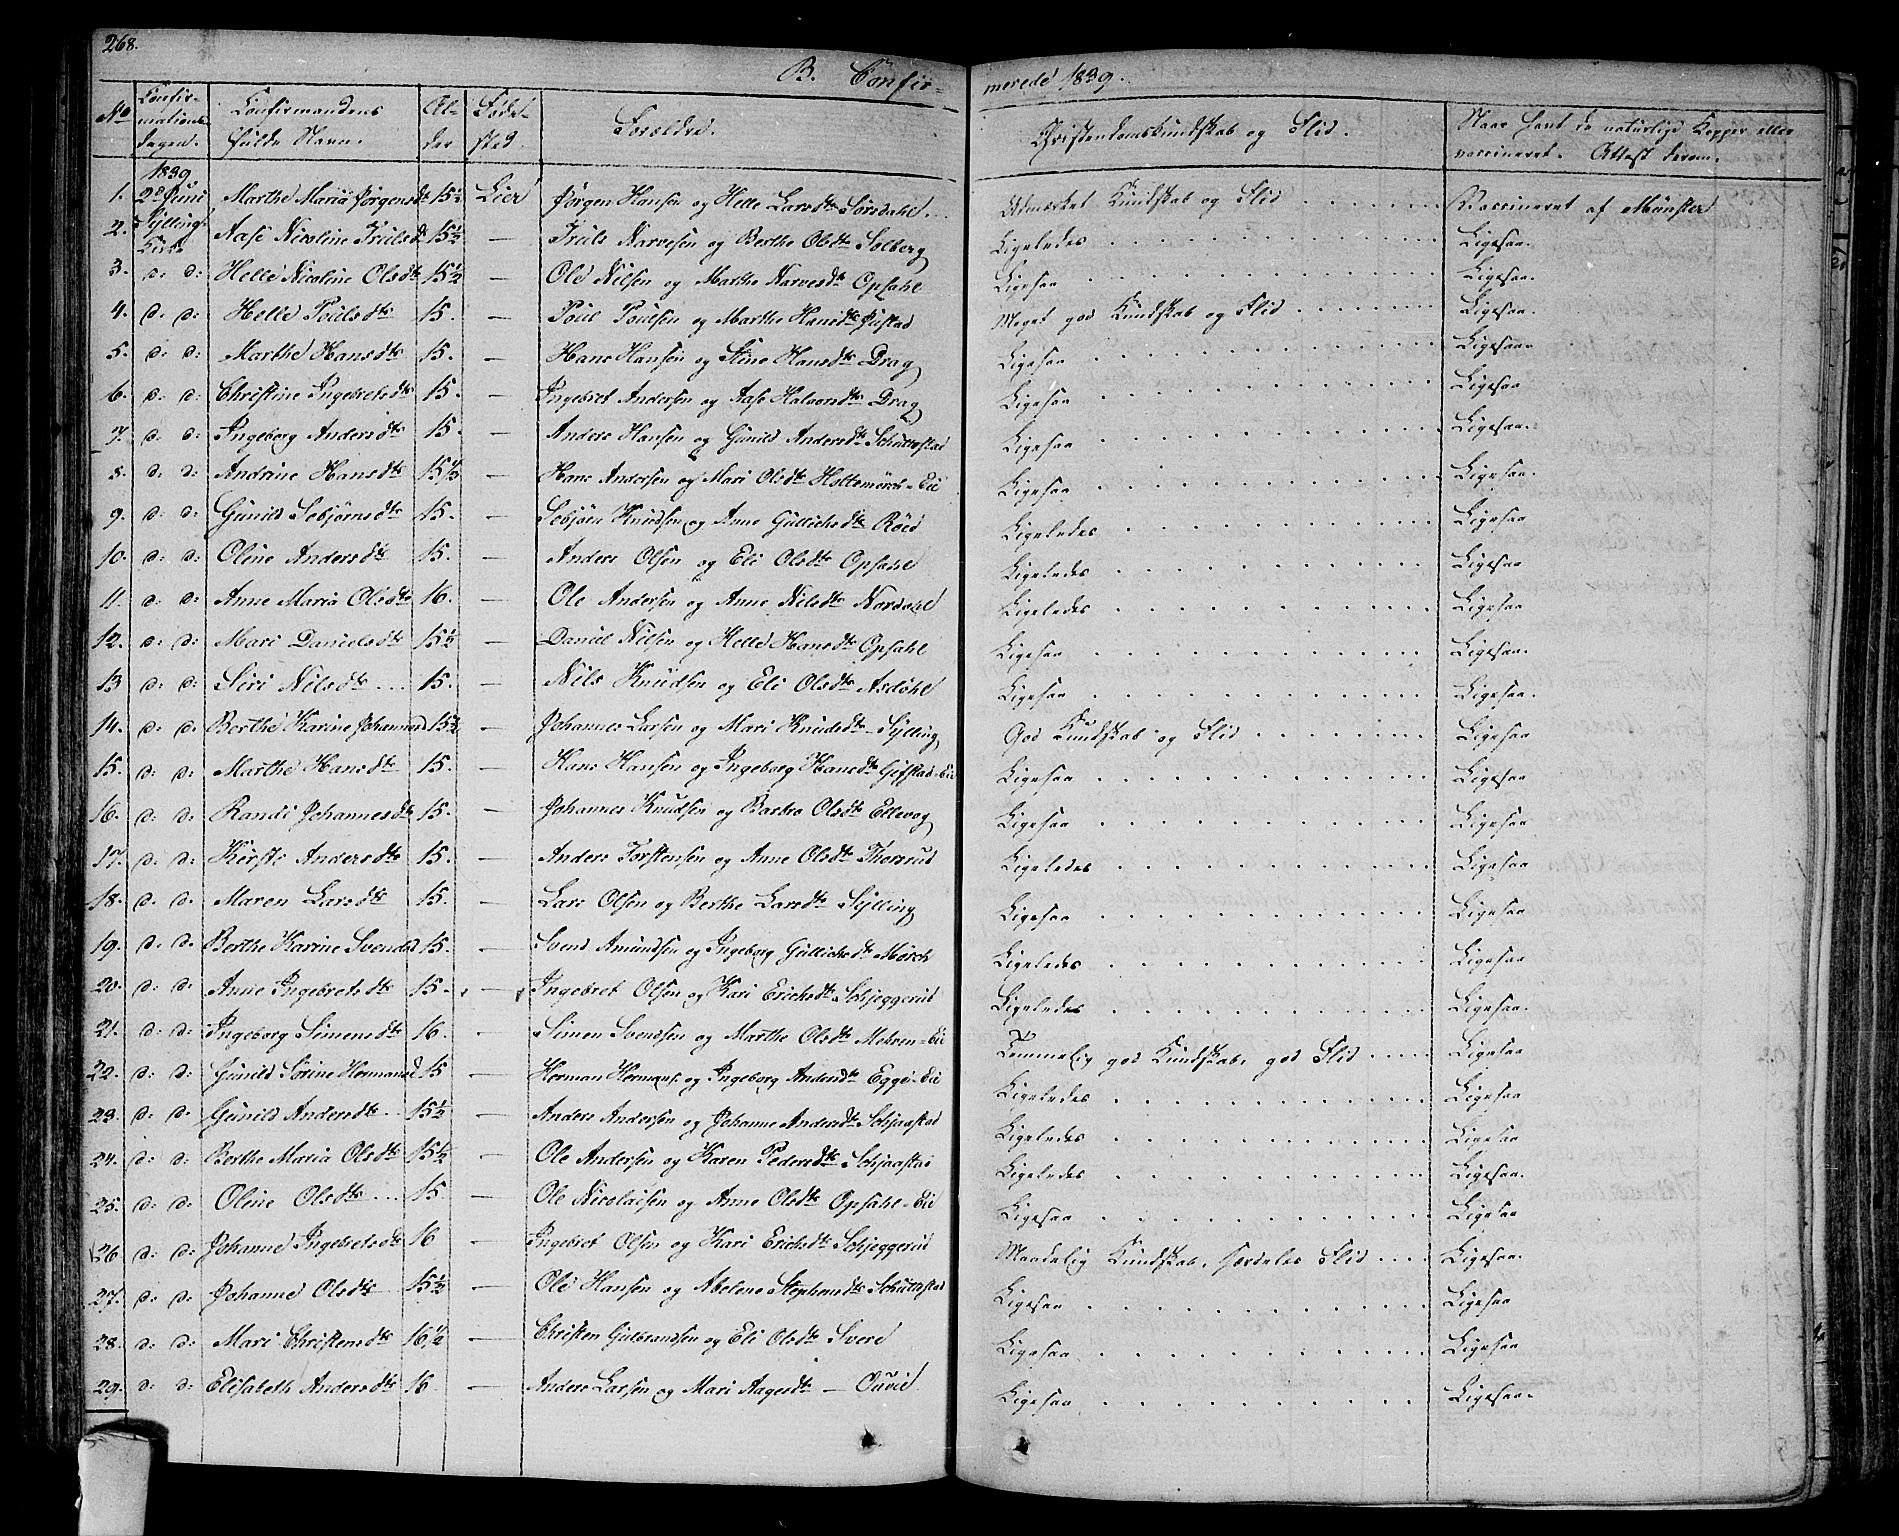 268.
B. Confir- merede 1839.
No Confir- mations dagen. Confirmandens fulde Navn. Al- der Føde- sted. Forældre. Christendomskundskab og Flid. Naar havt de naturlige Kopper eller vaccineret. Attest derom.
1839
1. 2d Juni Marthe Maria Jørgensdr 15½ Lier Jørgen Hansen og Helle Larsdtr Sørsdahl. Udmærket Kundskab og Flid Vaccineret af Münster
2. Sylling Kirke Aase Nicoline Truls d 15½ — Truls Narvesen og Berthe Olsdtr Solberg Ligeledes Ligesaa.
3. d: d: Helle Nicoline Olsdtr 15½ — Ole Nilsen og Marthe Narvesdtr Opsahl Ligesaa Ligesaa.
4. d: d: Helle Poulsdtr 15. — Poul Poulsen og Marthe Hansdtr Meget god Kundskab og Flid Ligesaa.
5. d: d: Marthe Hansdtr 15. — Hans Hansen og Stine Hansdtr Drag Ligesaa Ligesaa
6. d: d: Christine Ingebretsdtr 15. — Ingebret Andersen og Aase Halvorsdtr Drag Ligesaa Ligesaa
7. d: d: Ingeborg Andersdtr 15. — Anders Hansen og Gunild Andersdtr Schuttestad Ligesaa Ligesaa.
8. d: d: Andrine Hansdtr 15½ — Hans Andersen og Mari Olsdtr Holtsmörch-Eie Ligesaa Ligesaa
9. d: d: Gunild Sebjørnsdtr 15. — Sebjørn Knudsen og Anne Gullichsdtr Röed Ligeledes Ligesaa
10. d: d: Oline Andersdtr 15. — Anders Olsen og Eli Olsdtr Opsahl Ligeledes Ligesaa
11. d: d: Anne Maria Olsdtr 16. — Ole Andersen og Anne Nilsdtr Nordahl Ligeledes Ligesaa
12. d: d: Mari Danielsdtr 15½ — Daniel Nilsen og Helle Hansdtr Opsahl Ligesaa Ligesaa.
13 d: d: Siri Nilsdtr 15. — Nils Knudsen og Eli Olsdtr Asdöhl Ligesaa Ligesaa.
14. d: d: Berthe Karine Johannesd 15½ — Johannes Larsen og Mari Knudsdtr Sylling God Kundskab og Flid Ligesaa
15. d: d: Marthe Hansdtr 15. — Hans Hansen og Ingeborg Hansdtr Gifstad-Eie Ligesaa Ligesaa
16. d: d: Randi Johannesdtr 15. — Johannes Knudsen og Barbro Olsdtr Ellevog Ligesaa Ligesaa
17. d: d: Kirsti Andersdtr 15. — Anders Torstensen og Anne Olsdtr Thorsrud Ligeledes Ligesaa
18. d: d: Maren Larsdtr 15. — Lars Olsen og Berthe Larsdtr Sylling Ligesaa Ligesaa
19. d: d: Berthe Karine Svendsd 15. — Svend Amundsen og Ingeborg Gullichsdtr Mörch Ligeledes Ligesaa
20. d: d: Anne Ingebretsdtr 15. — Ingebret Olsen og Kari Erichsdtr Schjeggerud Ligeledes Ligesaa.
21. d: d: Ingeborg Simensdtr 16. — Simen Svendsen og Marthe Olsdtr Mehren-Eie Temmelig god Kundskab, god Flid Ligesaa
22. d: d: Gunild Sørine Hermansd 15 — Herman Hermans. og Ingeborg Andersdtr Egge-Eie Ligeledes Ligesaa
23. d: d: Gunild Andersdtr 15½ — Anders Andersen og Johanne Andersdtr Schjaastad Ligeledes Ligesaa
24. d: d: Berthe Maria Olsdtr 15½ — Ole Andersen og Karen Pedersdtr Schjaastad Ligeledes Ligesaa.
25. d: d: Oline Olsdtr 15 — Ole Nicolaisen og Anne Olsdtr Opsahl-Eie Ligesaa Ligesaa
26. d: d: Johanne Ingebretsdtr 16 — Ingebret Olsen og Kari Erichsdtr Schjeggerud Maadelig Kundskab, særdeles Flid Ligesaa.
27. d: d: Johanne Olsdtr 15½ — Ole Hansen og Abelone Stephensdtr Schuttestad Ligesaa Ligesaa
28. d: d: Mari Christensdtr 16½ — Christen Gulbrandsen og Eli Olsdtr Svere Ligesaa Ligesaa
29. d: d: Elisabeth Andersdtr 16 — Anders Larsen og Mari Aagesdtr — Ouvie Ligesaa Ligesaa.